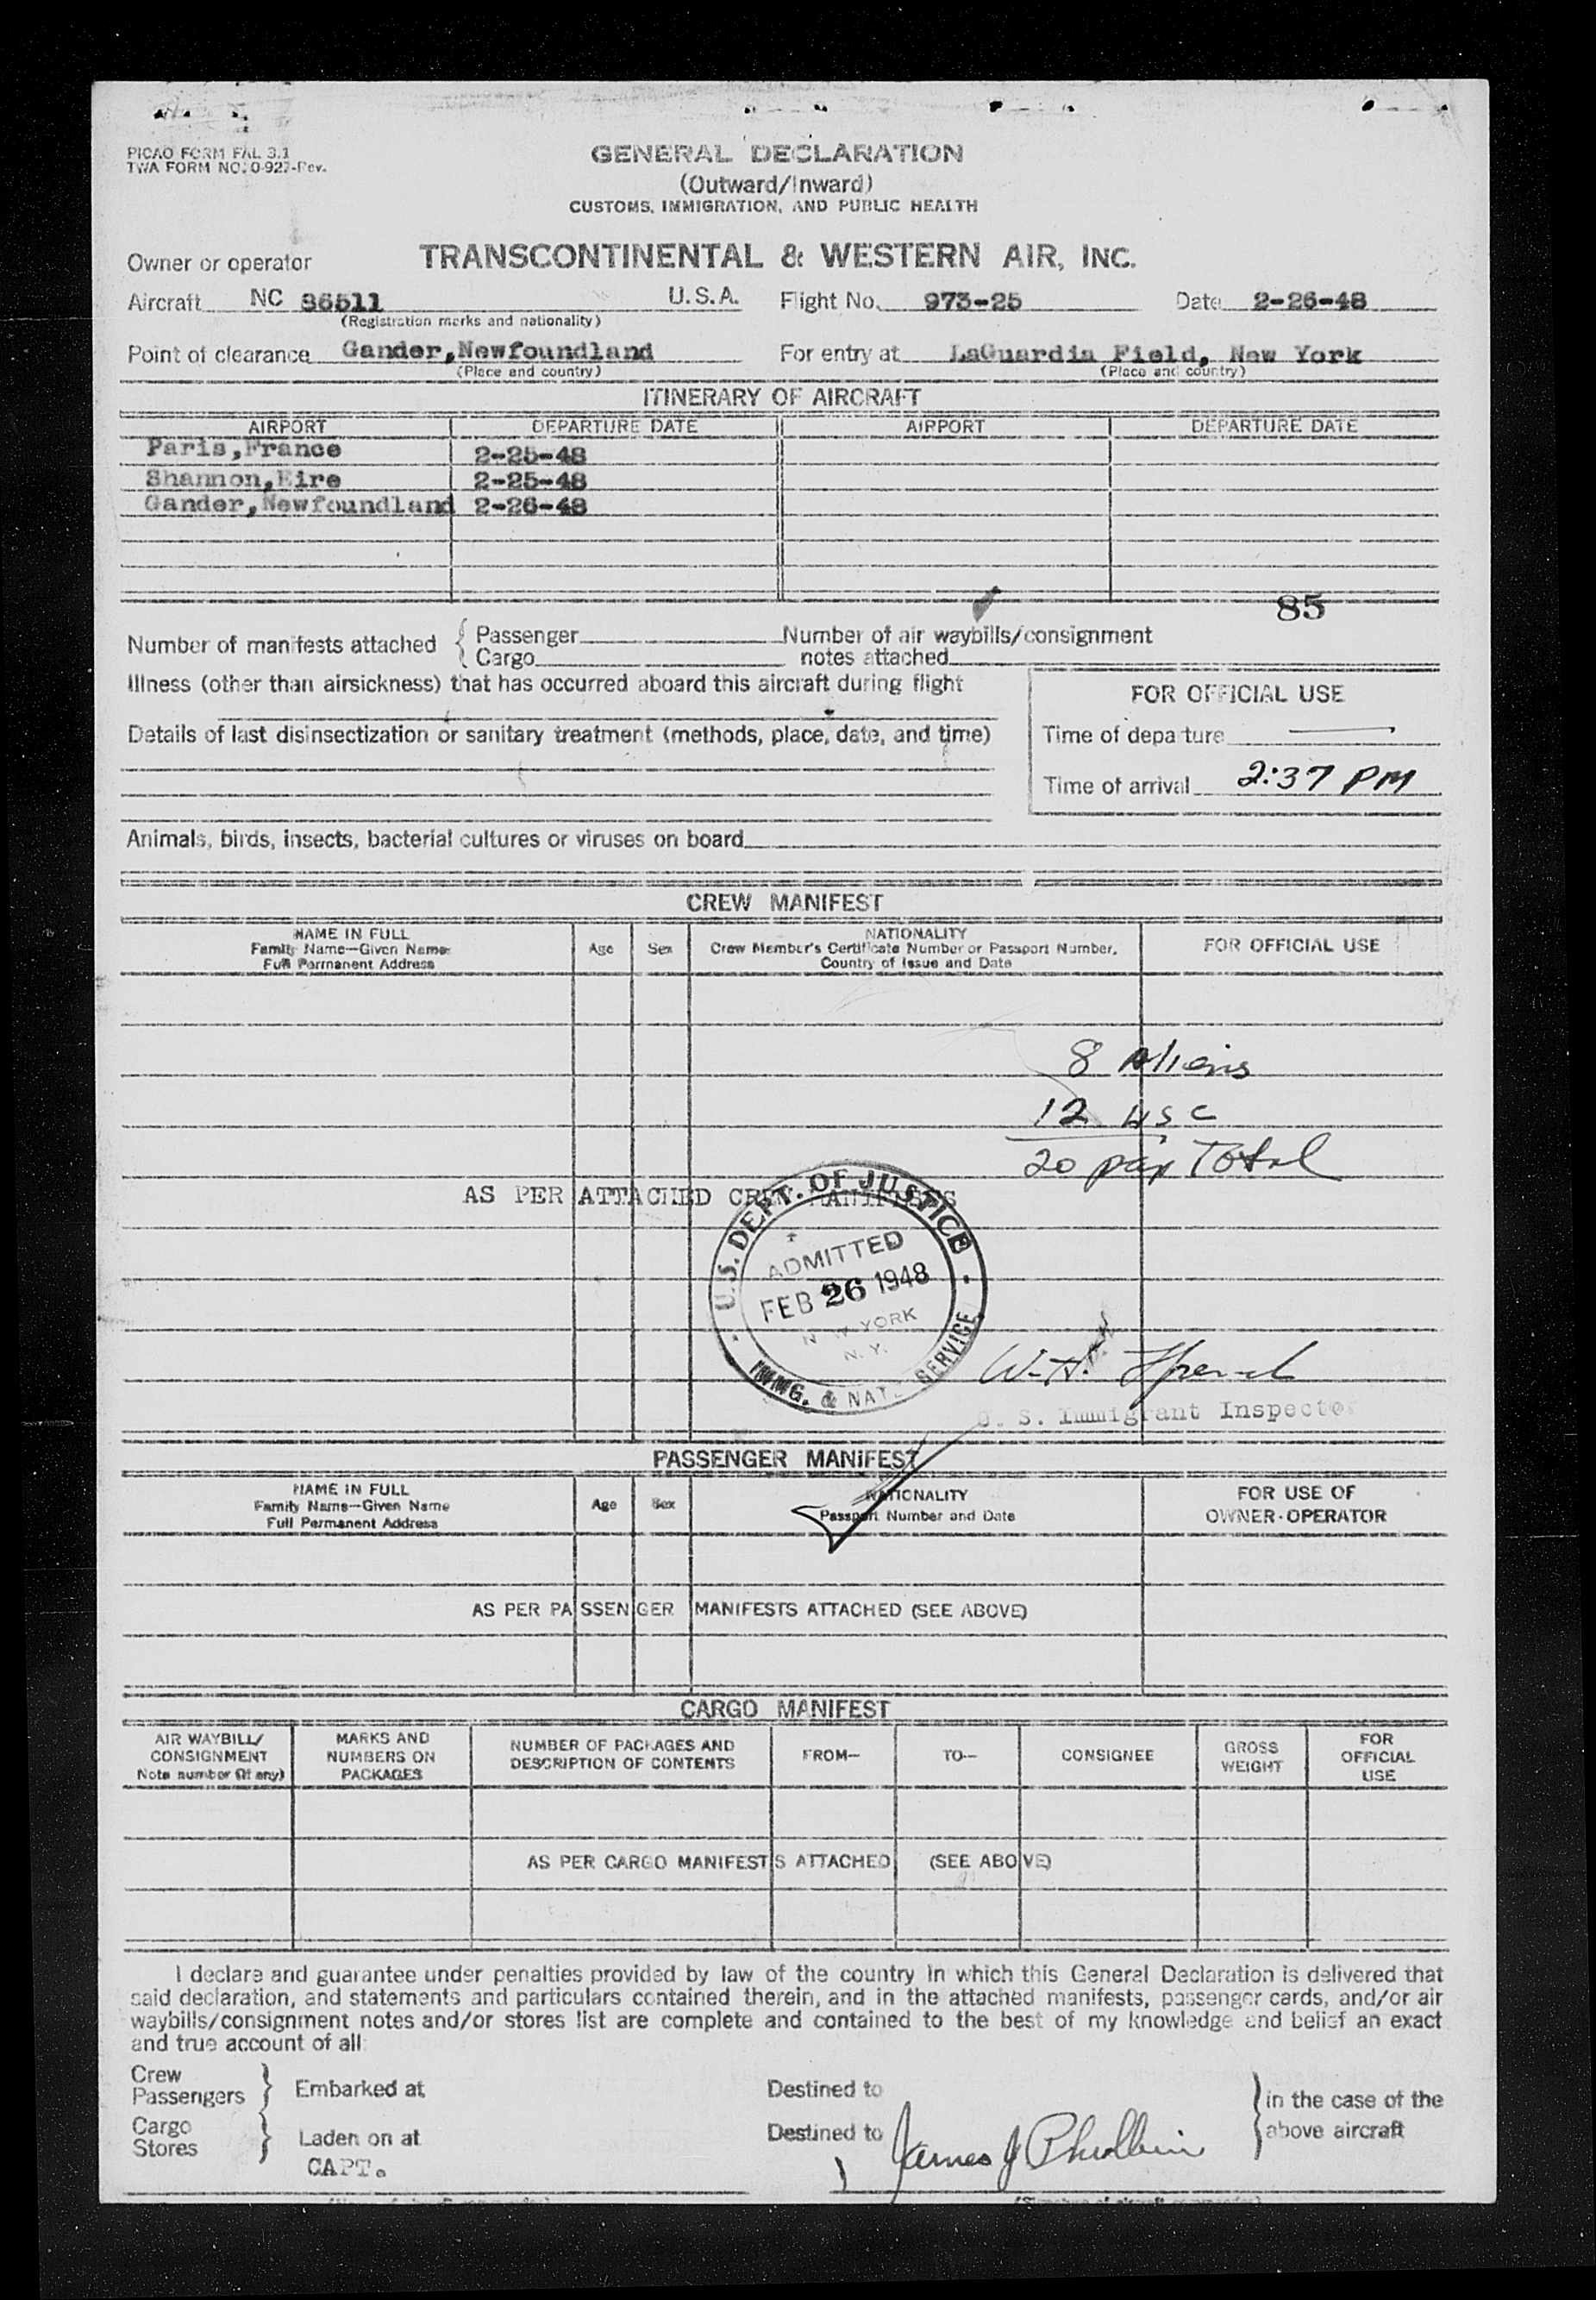 PICAO FORM FAL 3.1
TWA FORM NO. 0-927-Rev.
GENERAL DECLARATION
(Outward/Inward)
CUSTOMS, IMMIGRATION, AND PUBLIC HEALTH
Owner or operator TRANSCONTINENTAL & WESTERN AIR, INC.
Aircraft NC 86511 U.S.A. Flight No. 973-25 Date 2-26-48
(Registration marks and nationality)
Point of clearance Gander,Newfoundland For entry at LaGuardia Field, New York
(Place and country) (Place and country)
ITINERARY OF AIRCRAFT
AIRPORT DEPARTURE DATE AIRPORT DEPARTURE DATE
Paris,France 2-25-48
Shannon,Eire 2-25-48
Gander,Newfoundland 2-26-48
85
Number of manifests attached { Passenger Number of air waybills/consignment
Cargo notes attached
Illness (other than airsickness) that has occurred aboard this aircraft during flight
FOR OFFICIAL USE
Details of last disinsectization or sanitary treatment (methods, place, date, and time)
Time of departure
Time of arrival 2:37 PM
Animals, birds, insects, bacterial cultures or viruses on board
CREW MANIFEST
NAME IN FULL
Family Name—Given Name
Full Permanent Address
Age Sex
NATIONALITY
Crew Member's Certificate Number or Passport Number,
Country of Issue and Date
FOR OFFICIAL USE
8 Aliens
12 USC
20 pax Total
AS PER ATTACHED CREW MANIFESTS
U.S. DEPT. OF JUSTICE
ADMITTED
FEB 26 1948
NEW YORK
N. Y.
IMMG. & NAT. SERVICE
W.H.
U. S. Immigrant Inspector
PASSENGER MANIFEST
NAME IN FULL
Family Name—Given Name
Full Permanent Address
Age Sex
NATIONALITY
Passport Number and Date
FOR USE OF
OWNER-OPERATOR
AS PER PASSENGER MANIFESTS ATTACHED (SEE ABOVE)
CARGO MANIFEST
AIR WAYBILL/
CONSIGNMENT
Note number (if any)
MARKS AND
NUMBERS ON
PACKAGES
NUMBER OF PACKAGES AND
DESCRIPTION OF CONTENTS
FROM—
TO—
CONSIGNEE
GROSS
WEIGHT
FOR
OFFICIAL
USE
AS PER CARGO MANIFESTS ATTACHED (SEE ABOVE)
I declare and guarantee under penalties provided by law of the country in which this General Declaration is delivered that
said declaration, and statements and particulars contained therein, and in the attached manifests, passenger cards, and/or air
waybills/consignment notes and/or stores list are complete and contained to the best of my knowledge and belief an exact
and true account of all:
Crew
Passengers } Embarked at Destined to } in the case of the
Cargo
Stores } Laden on at Destined to above aircraft
James J Philbin
CAPT.